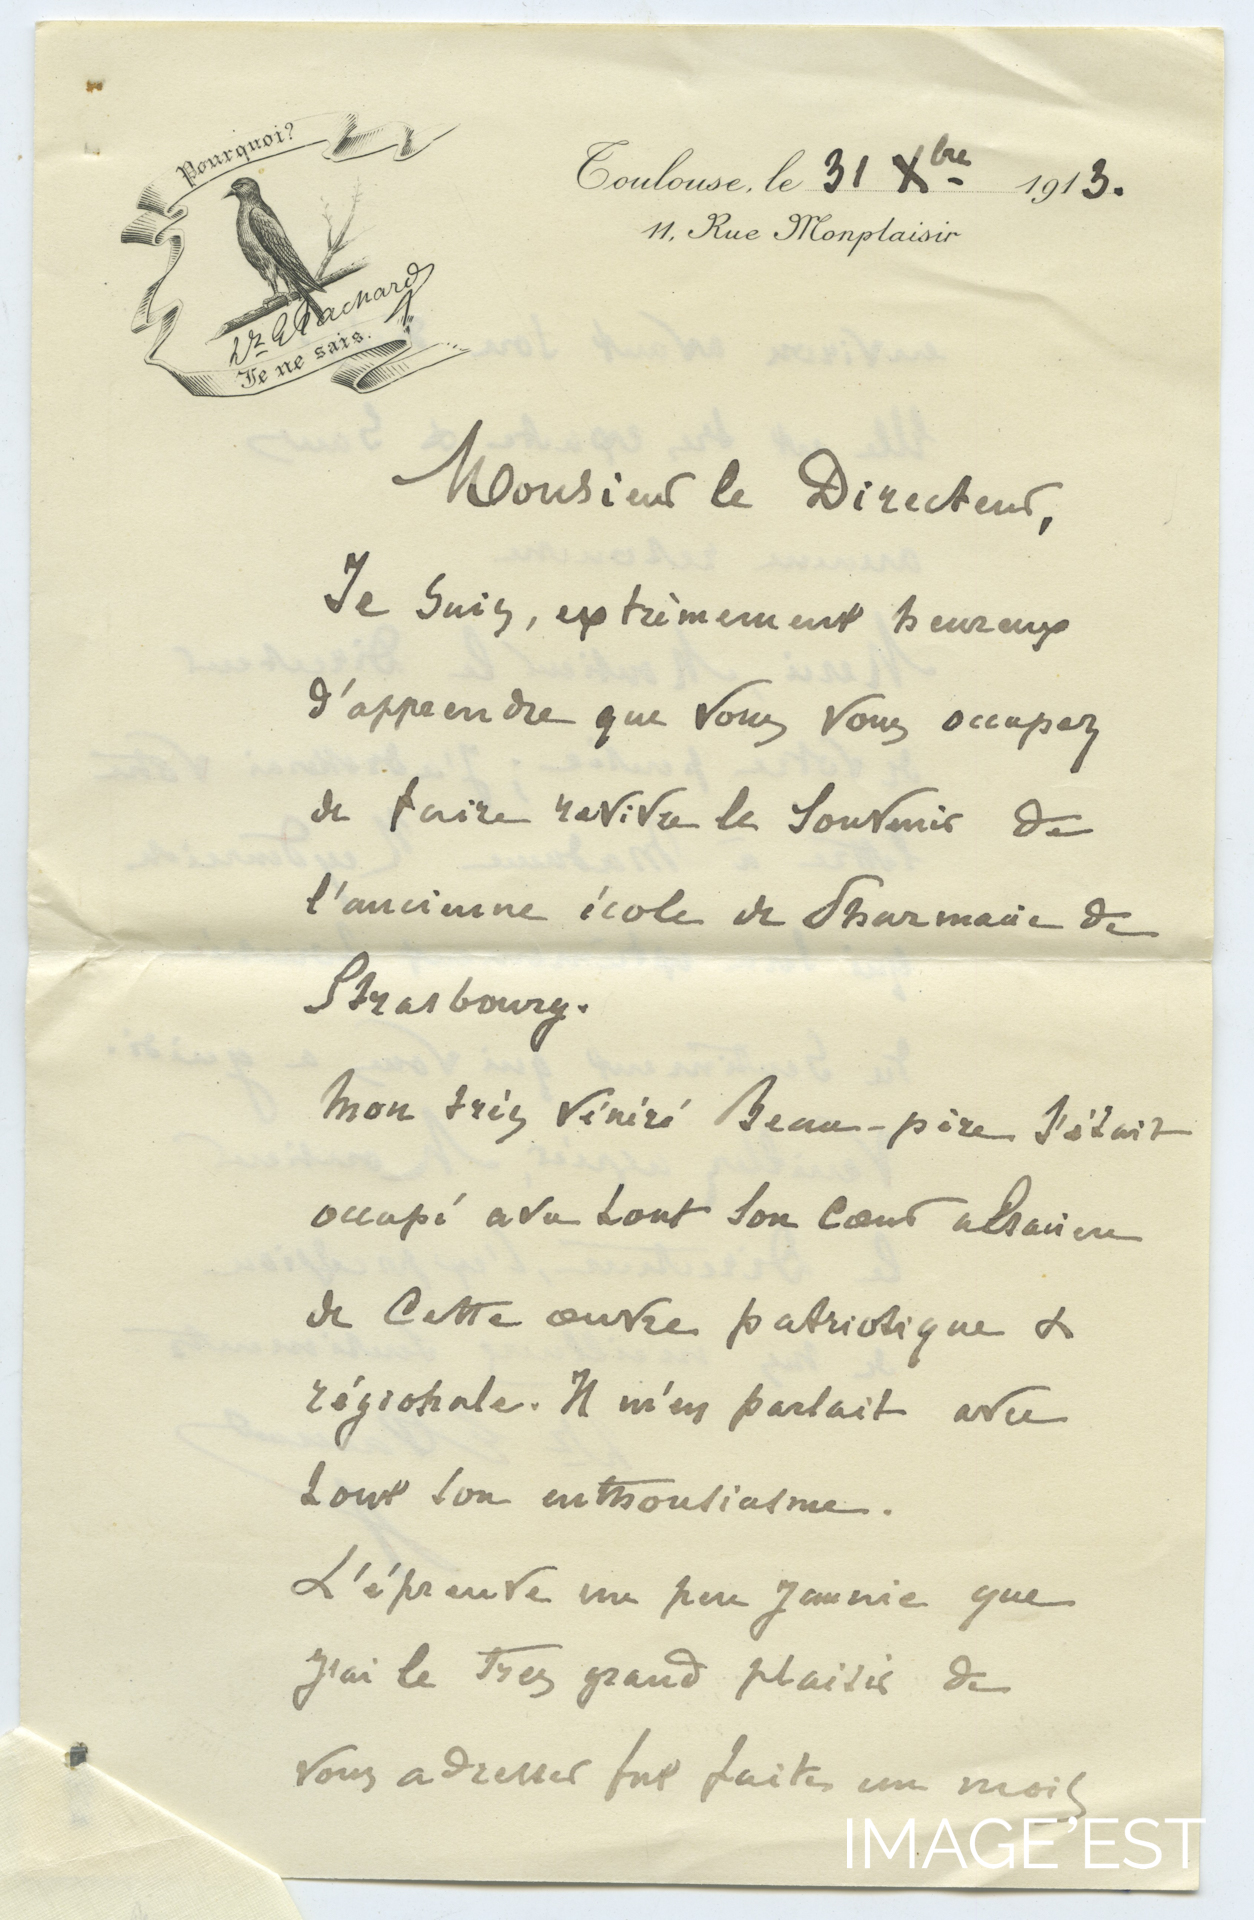 Pourquoi?
Dr E Pachard
Je ne sais.
Toulouse, le 31 Xbre 1913.
11, Rue Monplaisir
Monsieur le Directeur,
Je suis, extrèmement heureux
d'apprendre que vous vous occupez
de faire revivre le souvenir de
l'ancienne école de Pharmacie de
Strasbourg.
Mon très vénéré Beau-père s'était
occupé avec tout son cœur alsacien
de cette œuvre patriotique &
régionale. Il m'en parlait avec
tout son enthousiasme.
L'épreuve un peu jaunie que
j'ai le très grand plaisir de
vous adresser fut faite un mois
IMAGE'EST